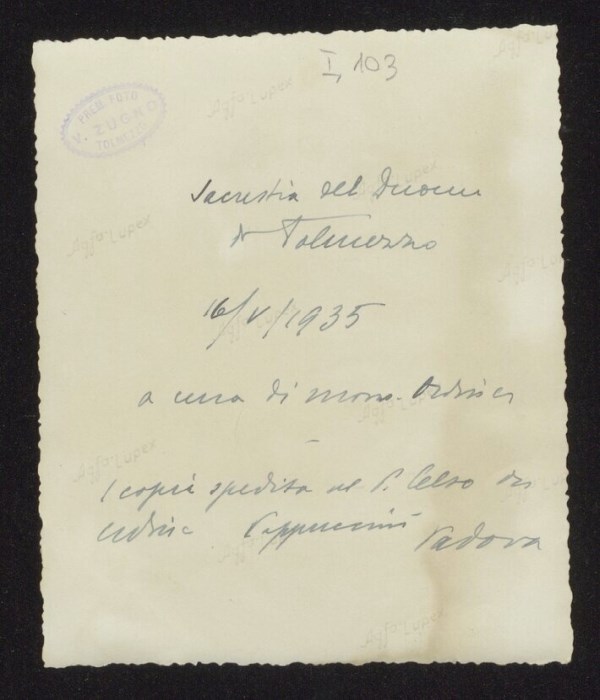 I, 103
PREM. FOTO
V. ZUGNO
TOLMEZZO
Agfa-Lupex
Agfa-Lupex
Agfa-Lupex
Agfa-Lupex
Sacrestia del Duomo
di Tolmezzo
16/V/1935
a cura di mons. Ordiner
Agfa-Lupex
1 copia spedita al P. Celso da
Udine Cappuccini Padova
Agfa-Lupex